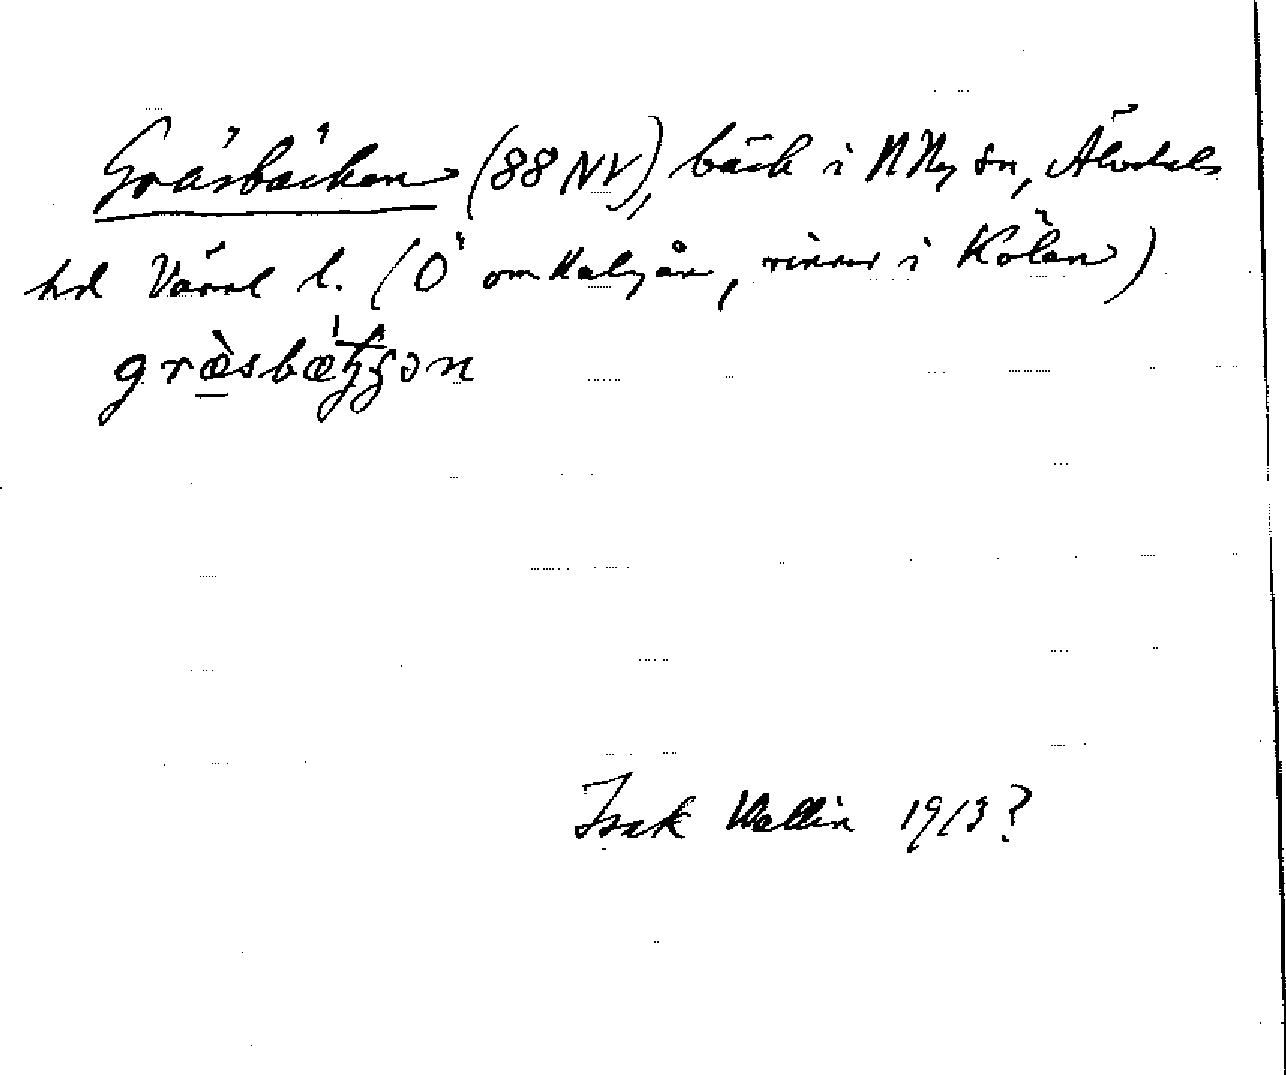 Gräsbäcken (88 NV), bäck i N Ny sn, Älvdals
hd Värml l. (Ö om Halgån, rinner i Kölan)
græ̀sbæ̀
Isak Wallin 1913?